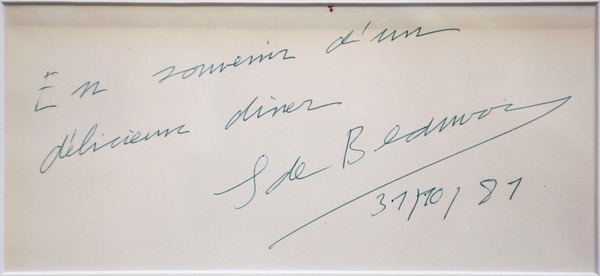 En souvenir d'un
délicieux diner
S de Beauvoir
31/10/81